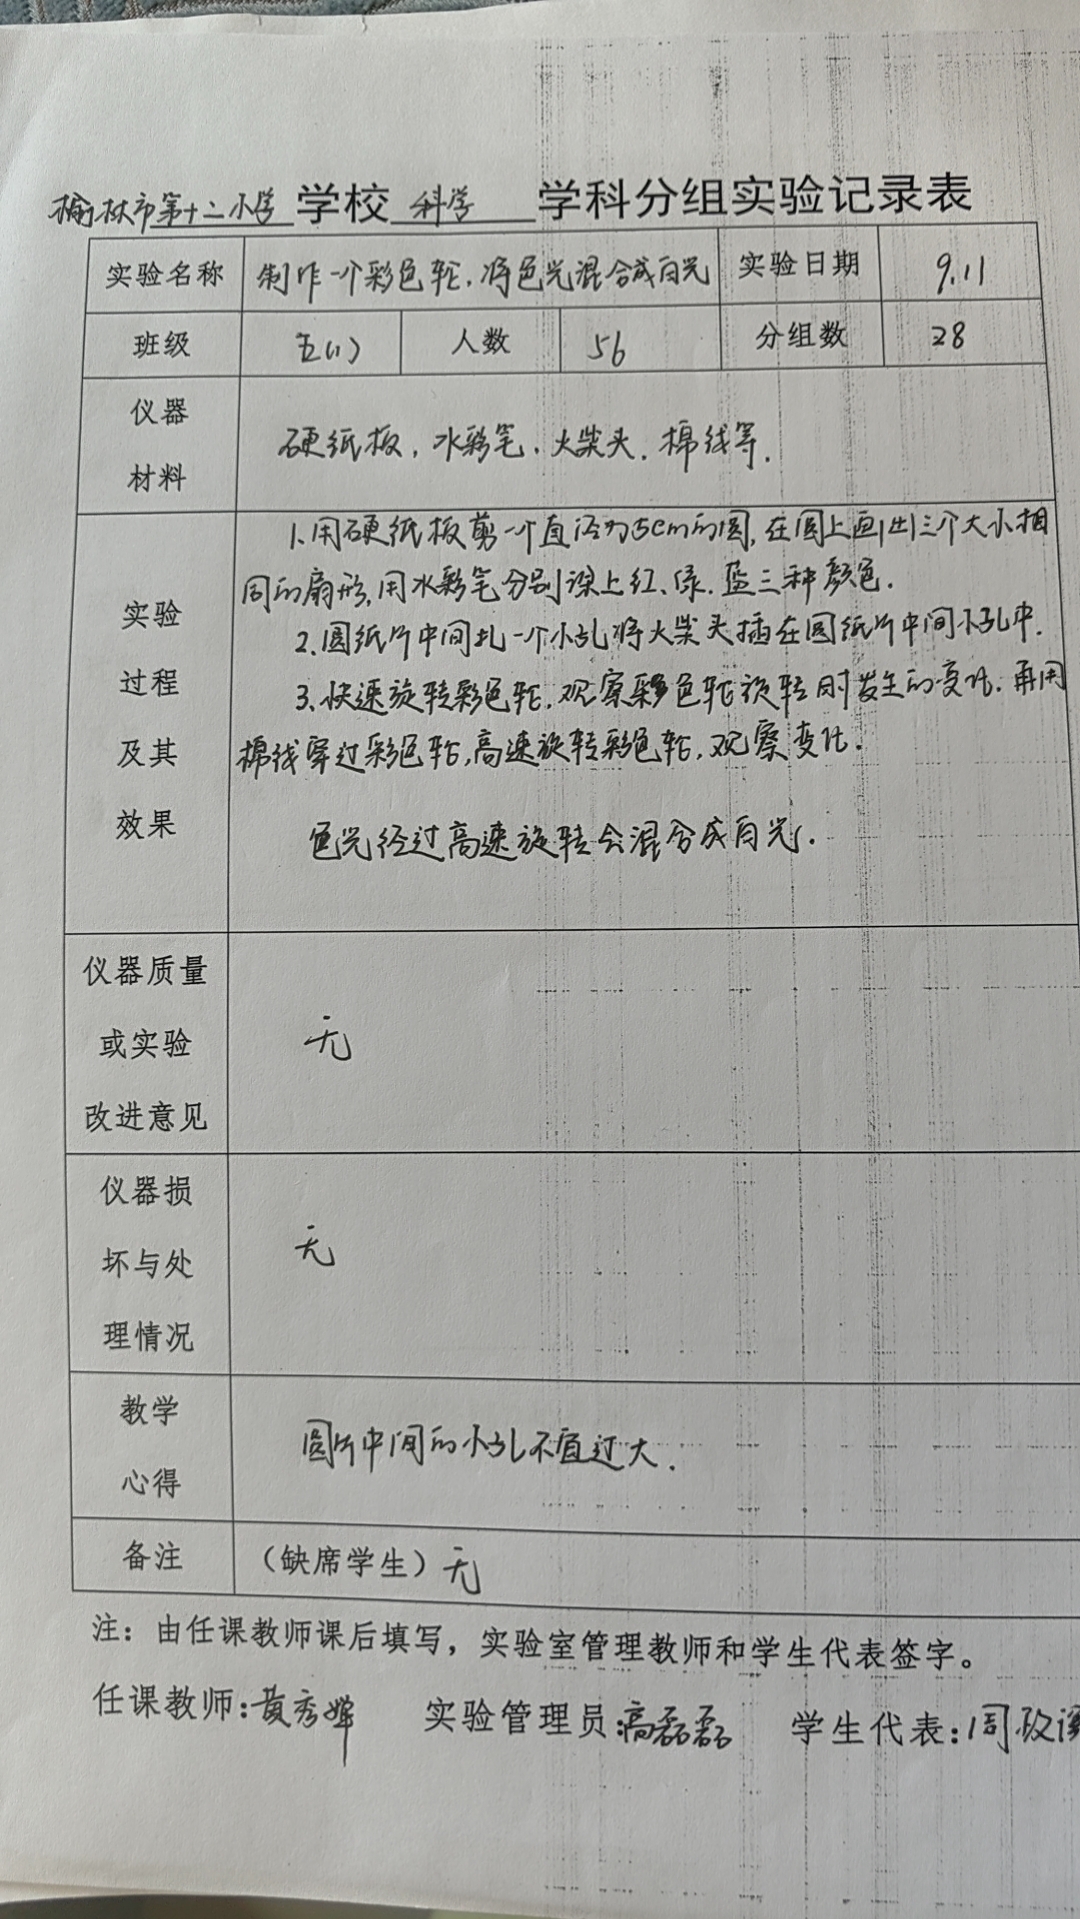 榆林市第十二小学学校 科学 学科分组实验记录表
实验名称 制作一个彩色轮,将色光混合成白光 实验日期 9.11
班级 五(1) 人数 56 分组数 28
仪器
材料
硬纸板,水彩笔、火柴头.棉线等.
实验
过程
及其
效果
1.用硬纸板剪一个直径为5cm的圆,在圆上画出三个大小相
同的扇形,用水彩笔分别涂上红、绿.蓝三种颜色.
2.圆纸片中间扎一个小孔将火柴头插在圆纸片中间小孔中.
3.快速旋转彩色轮,观察彩色轮旋转时发生的变化.再用
棉线穿过彩色轮,高速旋转彩色轮,观察变化.
色光经过高速旋转会混合成白光.
仪器质量
或实验
改进意见
无
仪器损
坏与处
理情况
无
教学
心得
圆片中间的小孔不宜过大.
备注 (缺席学生)无
注:由任课教师课后填写,实验室管理教师和学生代表签字。
任课教师:黄秀 实验管理员:高磊磊 学生代表:周